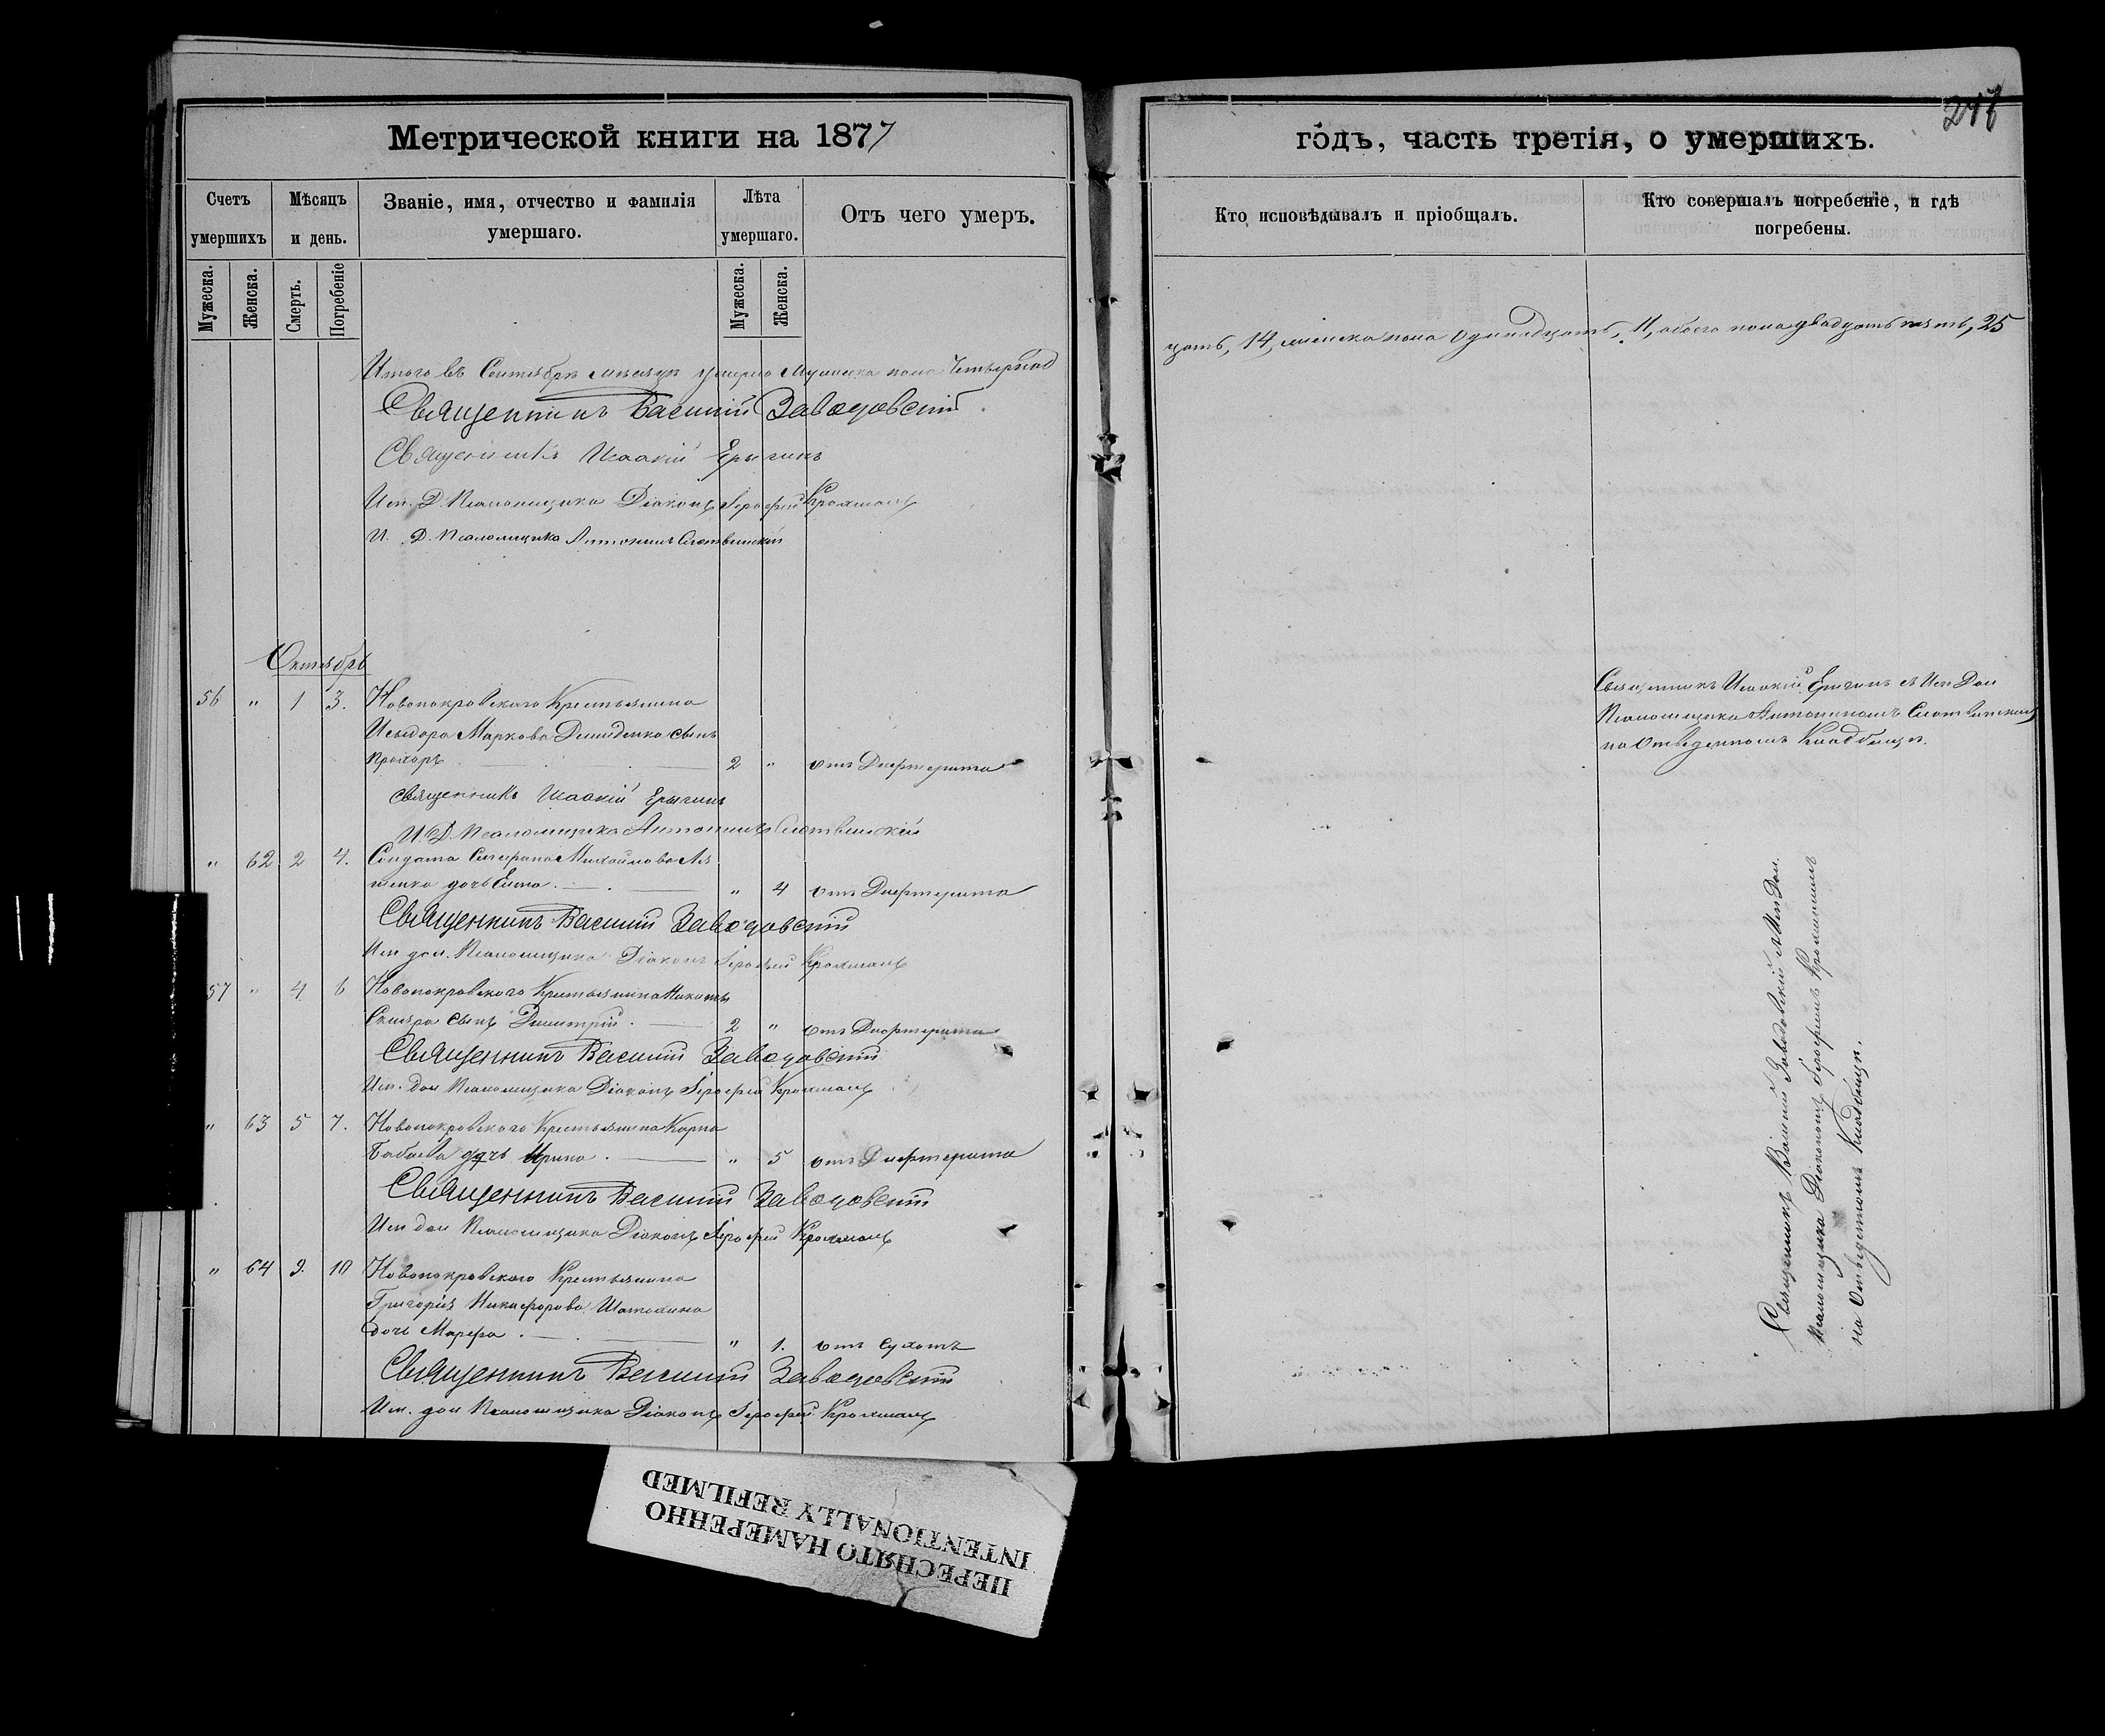 Метрической книги на 1877
годъ, часть третія, о умершихъ.
Счетъ умершихъ
Мѣсяцъ и день.
Званіе, имя, отчество и фамилія умершаго.
Лѣта умершаго.
Отъ чего умеръ.
Кто исповѣдывалъ и пріобщалъ.
Кто совершалъ погребеніе, и гдѣ погребены.
Мужеска.
Женска.
Смерть.
Погребеніе
Мужеска.
Женска.
Итого въ Сентябрѣ мѣсяцѣ умерло Мужеска пола Четырнад
цать, 14, женска пола Одинадцать, 11, обоего пола двадцать пять, 25
Священникъ Василій Заводовскій
Священникъ Исаакій Ерыгинъ
Исп. Д. Псаломщика Діаконъ Іерофей Крохмаль
И. Д. Псаломщика Антонинъ Слотвинскій
Октябрь
56 " 1 3. Новопокровского Крестьянина
Исидора Маркова Демиденко сынъ
Прохоръ 2 " отъ Дифтерита
Священникъ Исаакій Ерыгинъ съ Исп Дол
Псаломщика Антониномъ Слотвинским
на Отведенномъ Кладбищѣ.
Священникъ Исаакій Ерыгинъ
И. Д. Псаломщика Антонинъ Слотвинскій
" 62 2 4. Солдата Михайлова
дочь 4 отъ Дифтерита
Священникъ Василій Заводовскій
Исп дол. Псаломщика Діаконъ Іерофей Крохмаль
57 " 4 6 Новопокровского Крестьянина
сынъ Димитрій. 2 " отъ Дифтерита
Священникъ Василій Заводовскій
Исп. Дол Псаломщика Діаконъ Іерофей Крохмаль
" 63 5 7. Новопокровского Крестьянина Карпа
Бабаева дочь Ирина. " 5 отъ Дифтерита
Священникъ Василій Заводовскій
Исп дол Псаломщика Діаконъ Іерофей Крохмаль
" 64 9. 10 Новопокровского Крестьянина
Григорія Никифорова Шатохина
дочь Марфа. " 1. отъ Сухотъ
Священникъ Василій Заводовскій
Исп. дол Псаломщика Діаконъ Іерофей Крохмаль
Священникъ Василій Заводовскій съ Исп Дол.
Псаломщика Діакономъ Іерофеемъ Крохмалемъ
на Отведенномъ Кладбищѣ.
ПЕРЕСНЯТО НАМЕРЕННО
INTENTIONALLY REFILMED